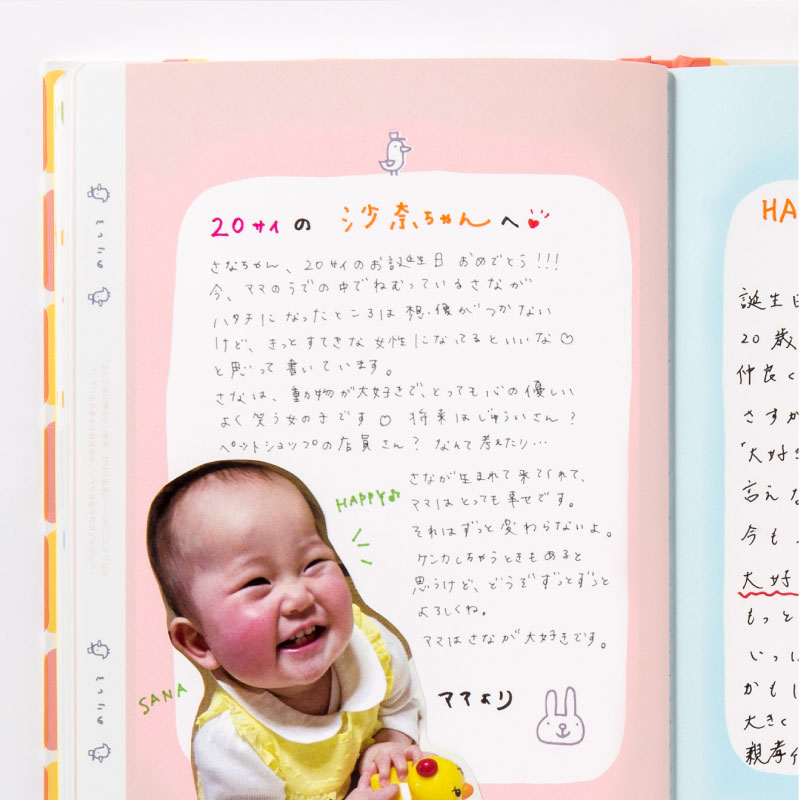 20サイの 沙奈ちゃんへ
さなちゃん、20サイのお誕生日 おめでとう!!!
今、ママのうでの中でねむっているさなが
ハタチになったところは想像がつかない
けど、きっとすてきな女性になってるといいな♡
と思って書いています。
さなは、動物が大好きで、とっても心の優しい
よく笑う女の子です♡ 将来はじゅういさん?
ペットショップの店員さん? なんて考えたり…
さなが生まれて来てくれて、
ママはとっても幸せです。
それはずっと変わらないよ。
ケンカしちゃうときもあると
思うけど、どうぞずっとずっと
よろしくね。
ママはさなが大好きです。
ママより
HAPPY♪
SANA
HA
誕生日
20歳
仲良く
さすか
「大好き
言えな
今も
大好
もっと
いっ
かもし
大きく
親孝行